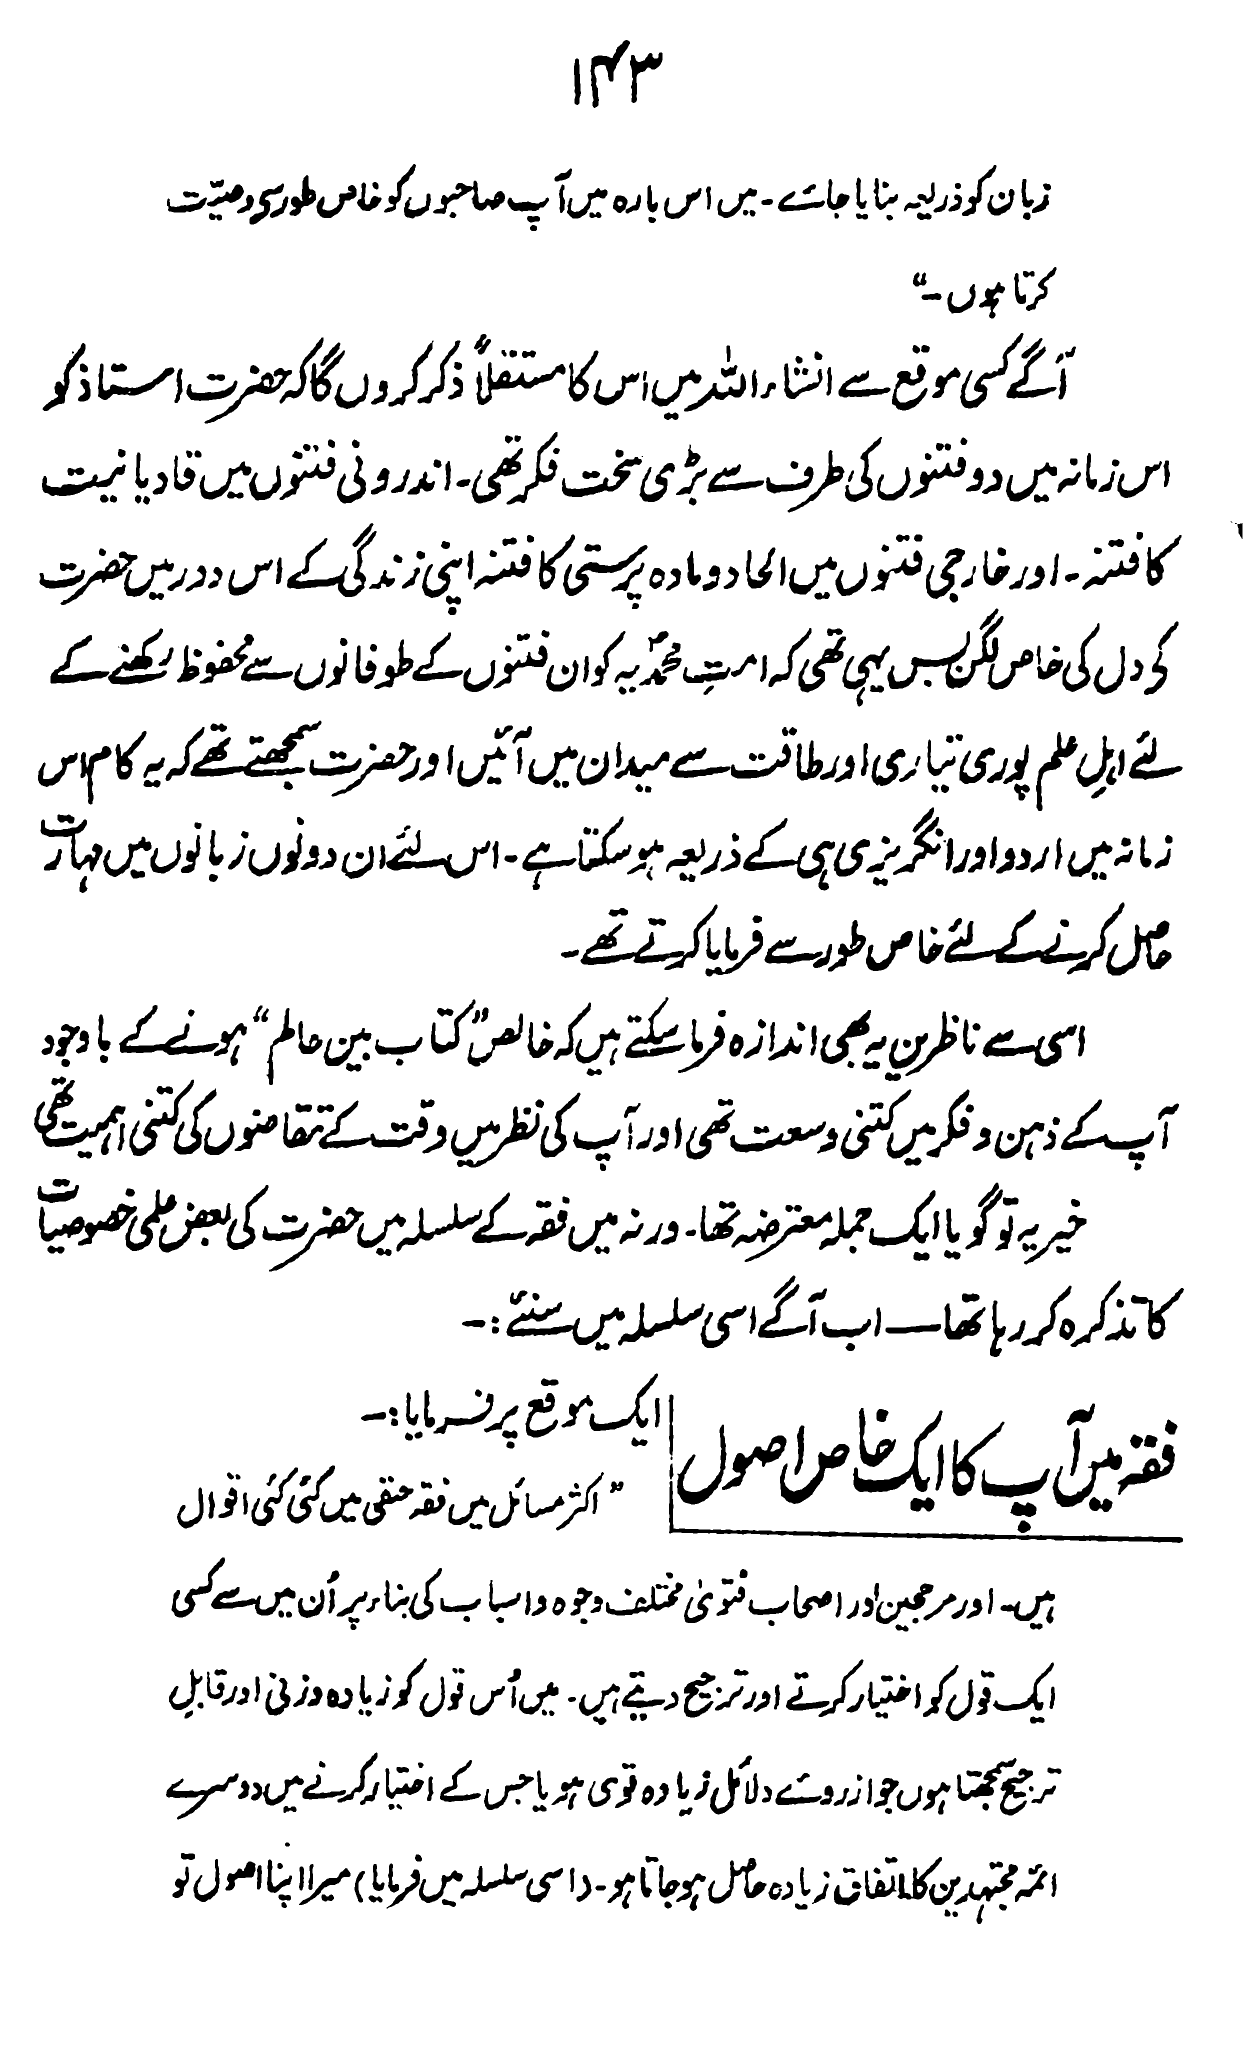 ۱۴۳
زبان کو ذریعہ بنایا جائے۔ میں اس بارہ میں آپ صاحبوں کو خاص طور سی وصیّت
کرتا ہوں۔“
آگے کسی موقع سے انشاء اللہ میں اس کا مستقلاً ذکر کروں گا کہ حضرت استاذ کو
اس زمانہ میں دو فتنوں کی طرف سے بڑی سخت فکر تھی۔ اندرونی فتنوں میں قادیانیت
کا فتنہ۔ اور خارجی فتنوں میں الحاد و مادہ پرستی کا فتنہ اپنی زندگی کے اس دور میں حضرت
کی دل کی خاص لگن بس یہی تھی کہ امتِ محمدؐیہ کو ان فتنوں کے طوفانوں سے محفوظ رکھنے کے
لئے اہلِ علم پوری تیاری اور طاقت سے میدان میں آئیں اور حضرت سمجھتے تھے کہ یہ کام اس
زمانہ میں اردو اور انگریزی ہی کے ذریعہ ہو سکتا ہے۔ اس لئے ان دونوں زبانوں میں مہارت
حاصل کرنے کے لئے خاص طور سے فرمایا کرتے تھے۔
اسی سے ناظرین یہ بھی اندازہ فرما سکتے ہیں کہ خالص ”کتاب بین عالم“ ہونے کے باوجود
آپ کے ذہن و فکر میں کتنی وسعت تھی اور آپ کی نظر میں وقت کے تقاضوں کی کتنی اہمیت تھی
خیر یہ تو گویا ایک جملہ معترضہ تھا۔ ورنہ میں فقہ کے سلسلہ میں حضرت کی بعض علمی خصوصیات
کا تذکرہ کر رہا تھا — اب آگے اسی سلسلہ میں سنئے:۔
فقہ میں آپ کا ایک خاص اصول
ایک موقع پر فرمایا:۔
”اکثر مسائل میں فقہ حنفی میں کئی کئی اقوال
ہیں۔ اور مرجحین اور اصحاب فتویٰ مختلف وجوہ و اسباب کی بناء پر اُن میں سے کسی
ایک قول کو اختیار کرتے اور ترجیح دیتے ہیں۔ میں اُس قول کو زیادہ وزنی اور قابلِ
ترجیح سمجھتا ہوں جو ازروئے دلائل زیادہ قوی ہو یا جس کے اختیار کرنے میں دوسرے
ائمہ مجتہدین کا اتفاق زیادہ حاصل ہو جاتا ہو۔ (اسی سلسلہ میں فرمایا) میرا اپنا اصول تو